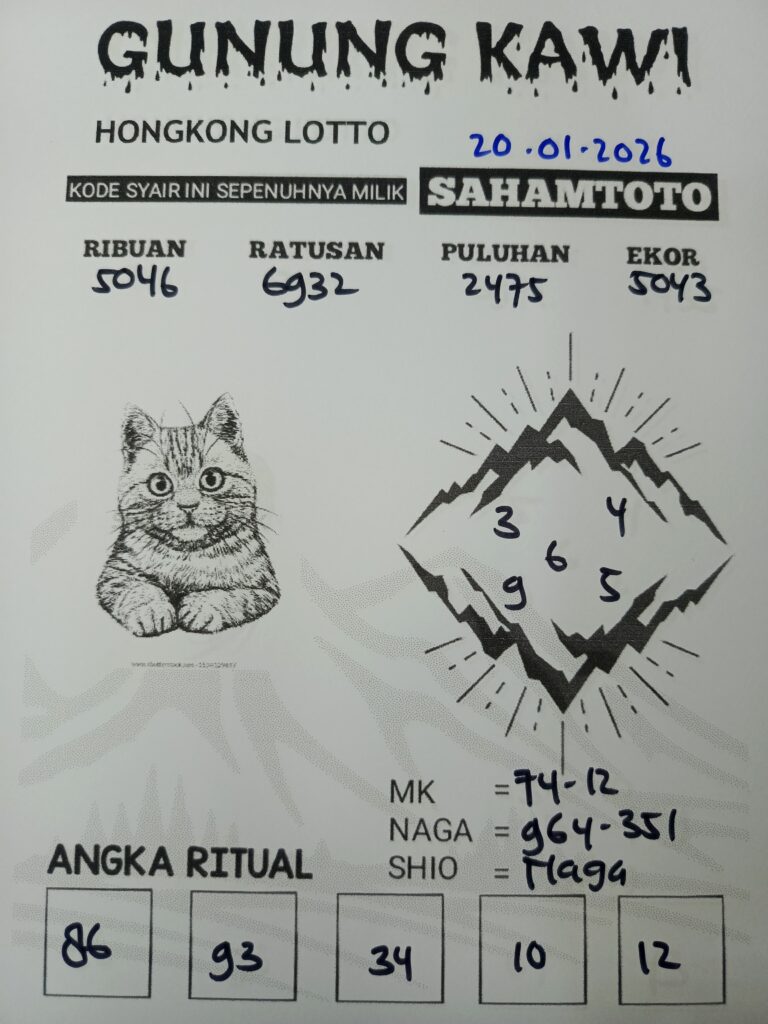 GUNUNG KAWI
HONGKONG LOTTO
20.01.2026
KODE SYAIR INI SEPENUHNYA MILIK SAHAMTOTO
RIBUAN RATUSAN PULUHAN EKOR
5046 6932 2475 5043
3 4
6
9 5
MK = 74-12
NAGA = 964-351
SHIO = Naga
ANGKA RITUAL
86 93 34 10 12